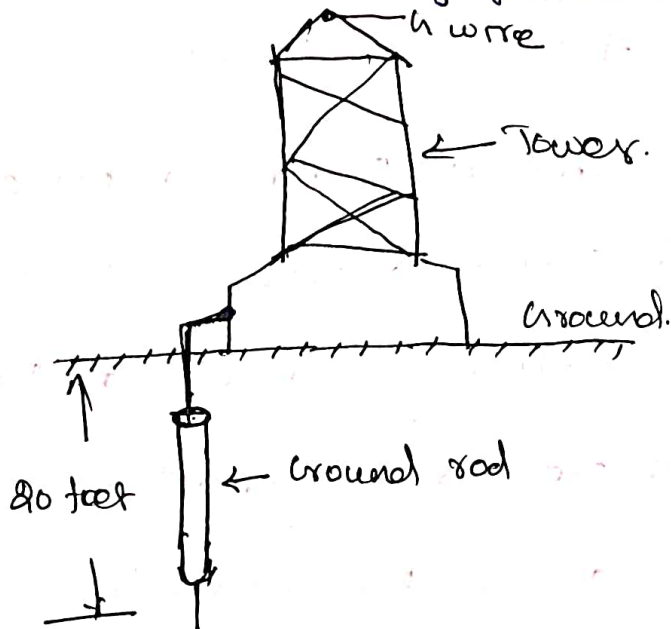 G wire
Tower.
Ground.
Ground rod
20 feet